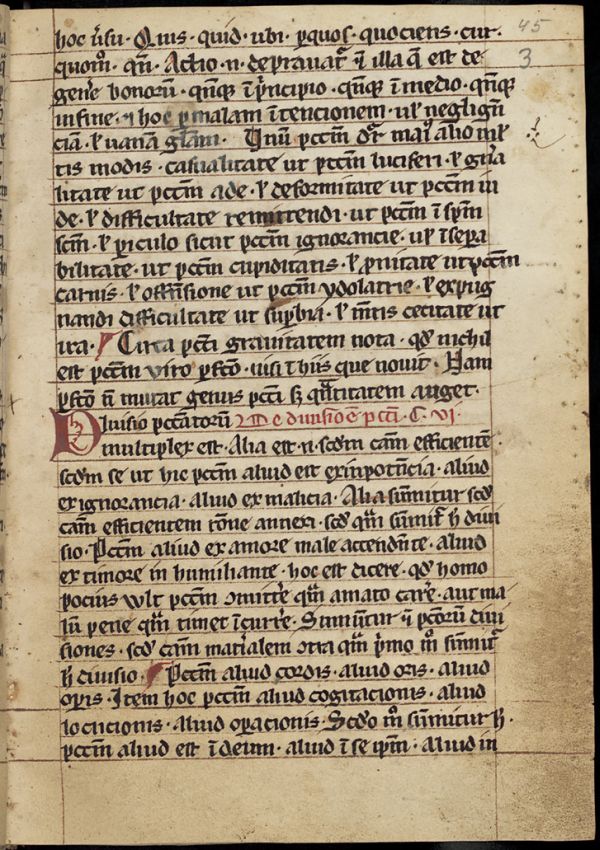 45
3
hoc ūsu · Quis · quid · ubi · ꝑ quos · quociens · cur ·
quom̄ · qn̄ · Actio · n̄ · deprauat᷑ ī illa q̄ est de
gen̄e bonorū · qn̄qꝫ ī pͥncipio · qn̄qꝫ ī medio · qn̄qꝫ
in fine · ⁊ hoc ꝑ malam ītencionem · ul̓ negligen̄
ciā · l̓ uanā gl̄am · Unū pcc̄m dr̄ maiꝰ alio ml̓
tis modis · casualitate ut pcc̄m luciferi · l̓ gn̄a
litate ut pcc̄m ade · l̓ deformitate ut pcc̄m iu
de · l̓ difficultate remittendi · ut pcc̄m ī spm̄
scm̄ · l̓ ꝑiculo sicut pcc̄m ignorancie · ul̓ īsepa
bilitate · ut pcc̄m cupiditatis · l̓ ꝓnitate ut pcc̄m
carnis · l̓ offēsione ut pcc̄m ydolatrie · l̓ expug
nandi difficultate ut suꝑbia · l̓ mn̄tis cecitate ut
ira · Circa pcc̄i grauitatem nota · qd̓ nichil
est pcc̄m uiro ꝑfc̄o · nisi ī hiis que nouit · Nam
ꝑfc̄o n̄ mutat genus pcc̄i sꝫ qn̄titatem auget ·
Diuisio pcc̄atorū De diuisiōe pcc̄i · C · VI ·
multiplex est · Alia est · n̄ · scdm̄ cām efficientē ·
scdm̄ se ut hic pcc̄m aliud est ex inpotēncia · aliud
ex ignorancia · aliud ex malicia · Alia sūmitur scd̓
cām efficientem rōne annexi · scd̓ qm̄ sūmit᷑ h̄ diui
sio · Pcc̄m aliud ex amore male accendn̄te · aliud
ex timore in humiliante · hoc est dicere · qd̓ homo
pocius uult pcc̄m ꝯmittr̄e qm̄ amato car̄e · aut ma
lū pene qm̄ timet īcurr̄e · Sumūtur ⁊ pcc̄orū diui
siones · scd̓ cām mat̄ialem ꝯtra qm̄ pͥmo mͦ sūmit᷑
h̄ diuisio · Pcc̄m aliud cordis · aliud oris · aliud
oꝑis · Item hoc pcc̄m aliud cogitacionis · aliud
locucionis · aliud oꝑacionis · Scd̓o mͦ sūmitur h̄ ·
pcc̄m aliud est ī deum · aliud ī se ip̄m · aliud in